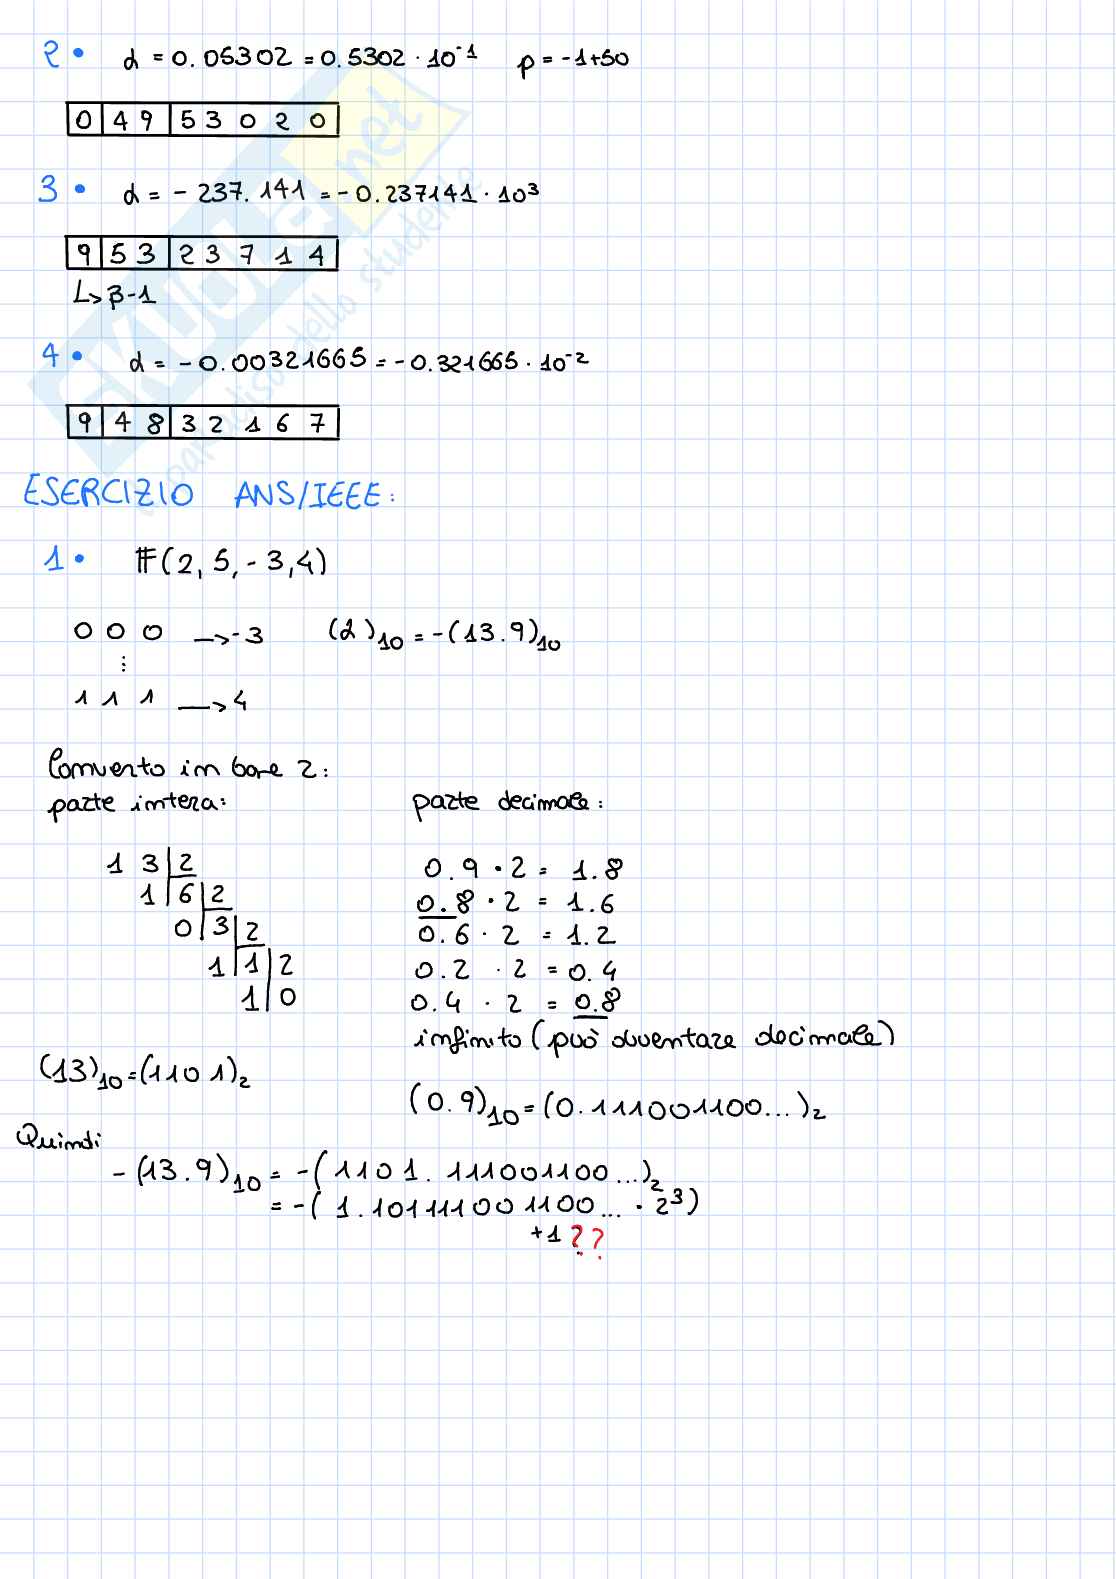 2• d = 0.05302 = 0.5302 · 10⁻¹ p = -1+50
0 4 9 5 3 0 2 0
3• d = - 237.141 = - 0.237141 · 10³
9 5 3 2 3 7 1 4
↳ β-1
4• d = - 0.00321665 = - 0.321665 · 10⁻²
9 4 8 3 2 1 6 7
ESERCIZIO ANS/IEEE:
1• F(2, 5, -3, 4)
0 0 0 —> -3 (d)₁₀ = -(13.9)₁₀
⋮
1 1 1 —> 4
Converto in base 2:
parte intera: parte decimale:
1 3 | 2 0.9 · 2 = 1.8
1 | 6 | 2 0.8 · 2 = 1.6
0 | 3 | 2 0.6 · 2 = 1.2
1 | 1 | 2 0.2 · 2 = 0.4
1 | 0 0.4 · 2 = 0.8
infinito (può diventare decimale)
(13)₁₀ = (1101)₂
(0.9)₁₀ = (0.111001100...)₂
Quindi
-(13.9)₁₀ = -(1101.111001100...)₂
= -(1.101111001100... · 2³)
+1 ??
SKUOLA.net
paradiso dello studente